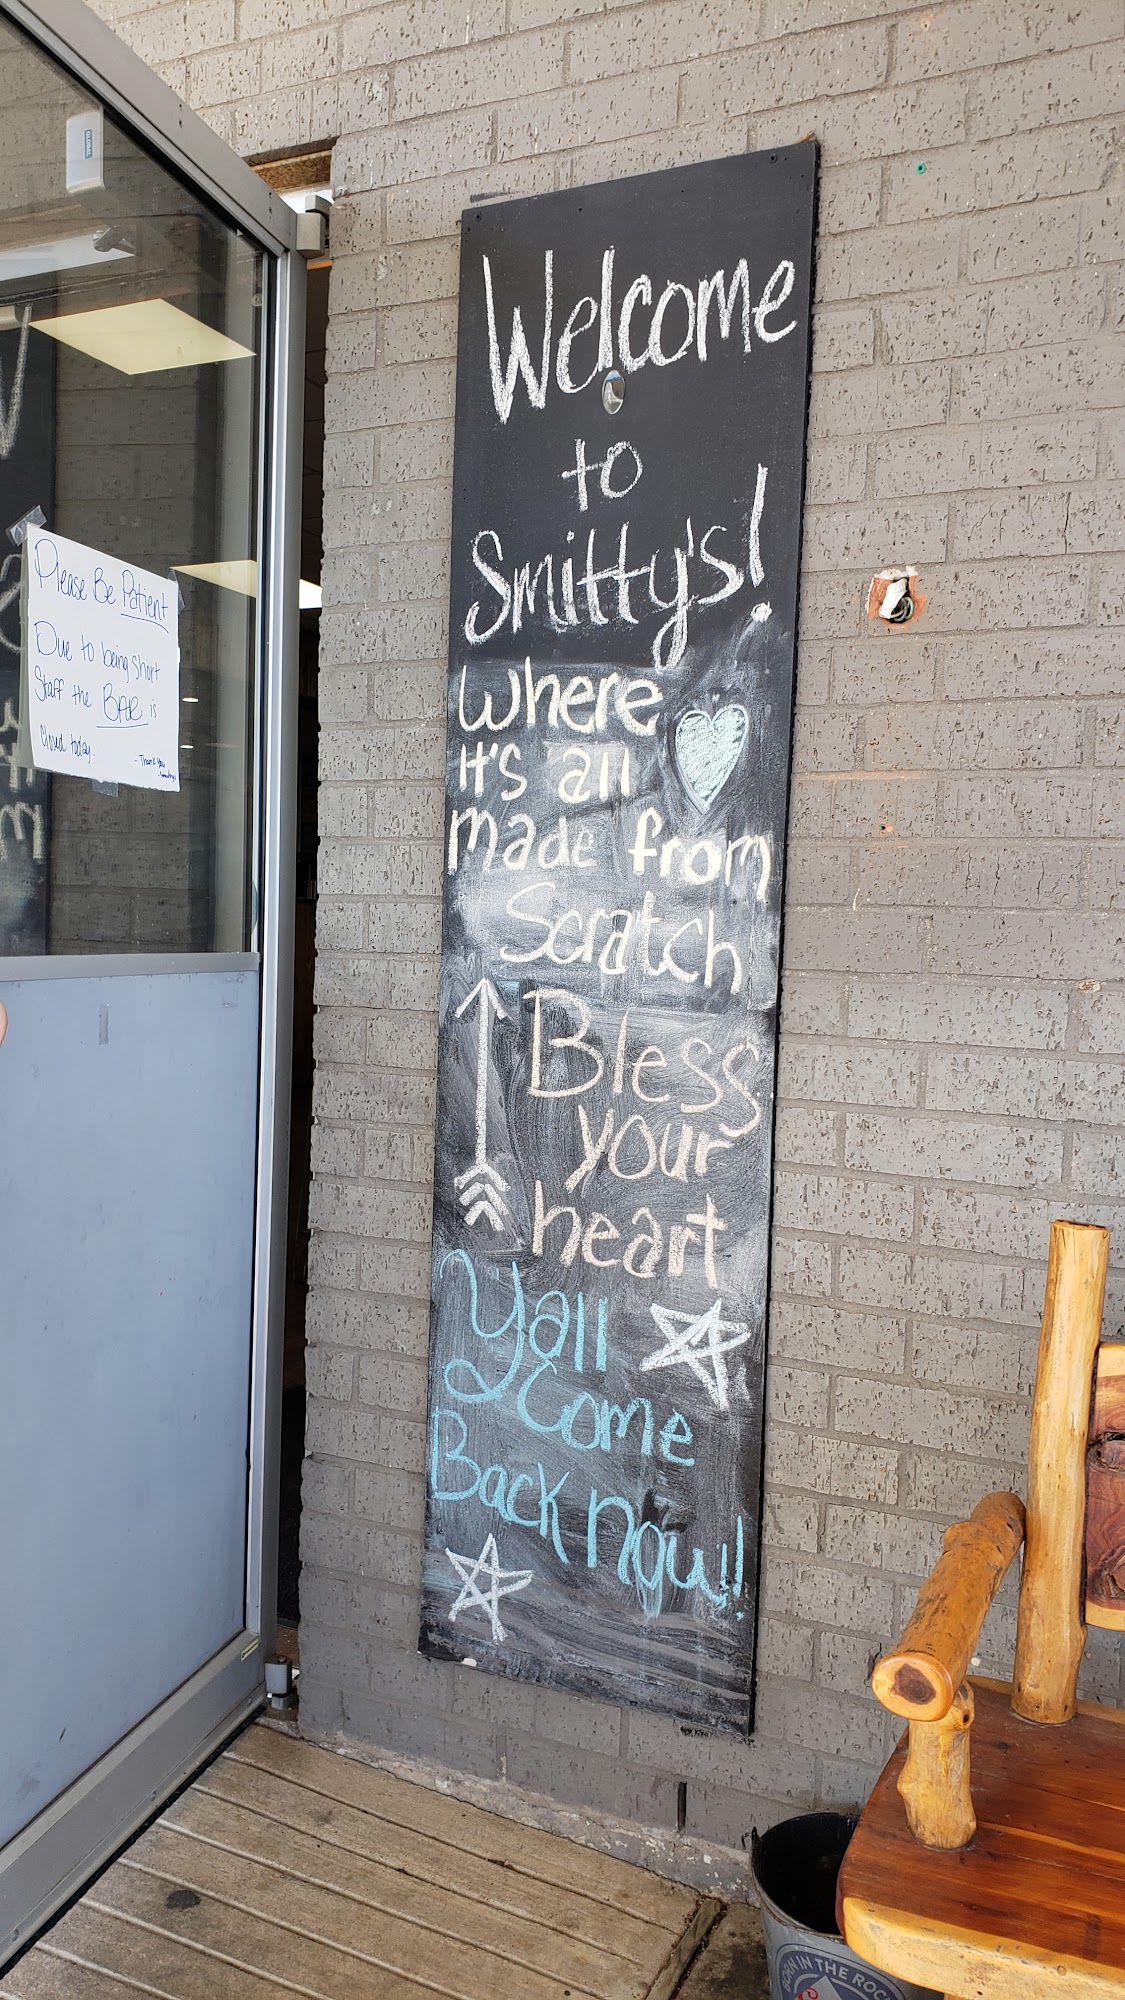 Please Be Patient
Due to being short
Staff the BAR is
Closed today.
- Thank you
- Smitty's
Welcome
to
Smitty's!
Where
it's all
made from
Scratch
Bless
your
heart
Yall
Come
Back now!!
BORN IN THE ROC